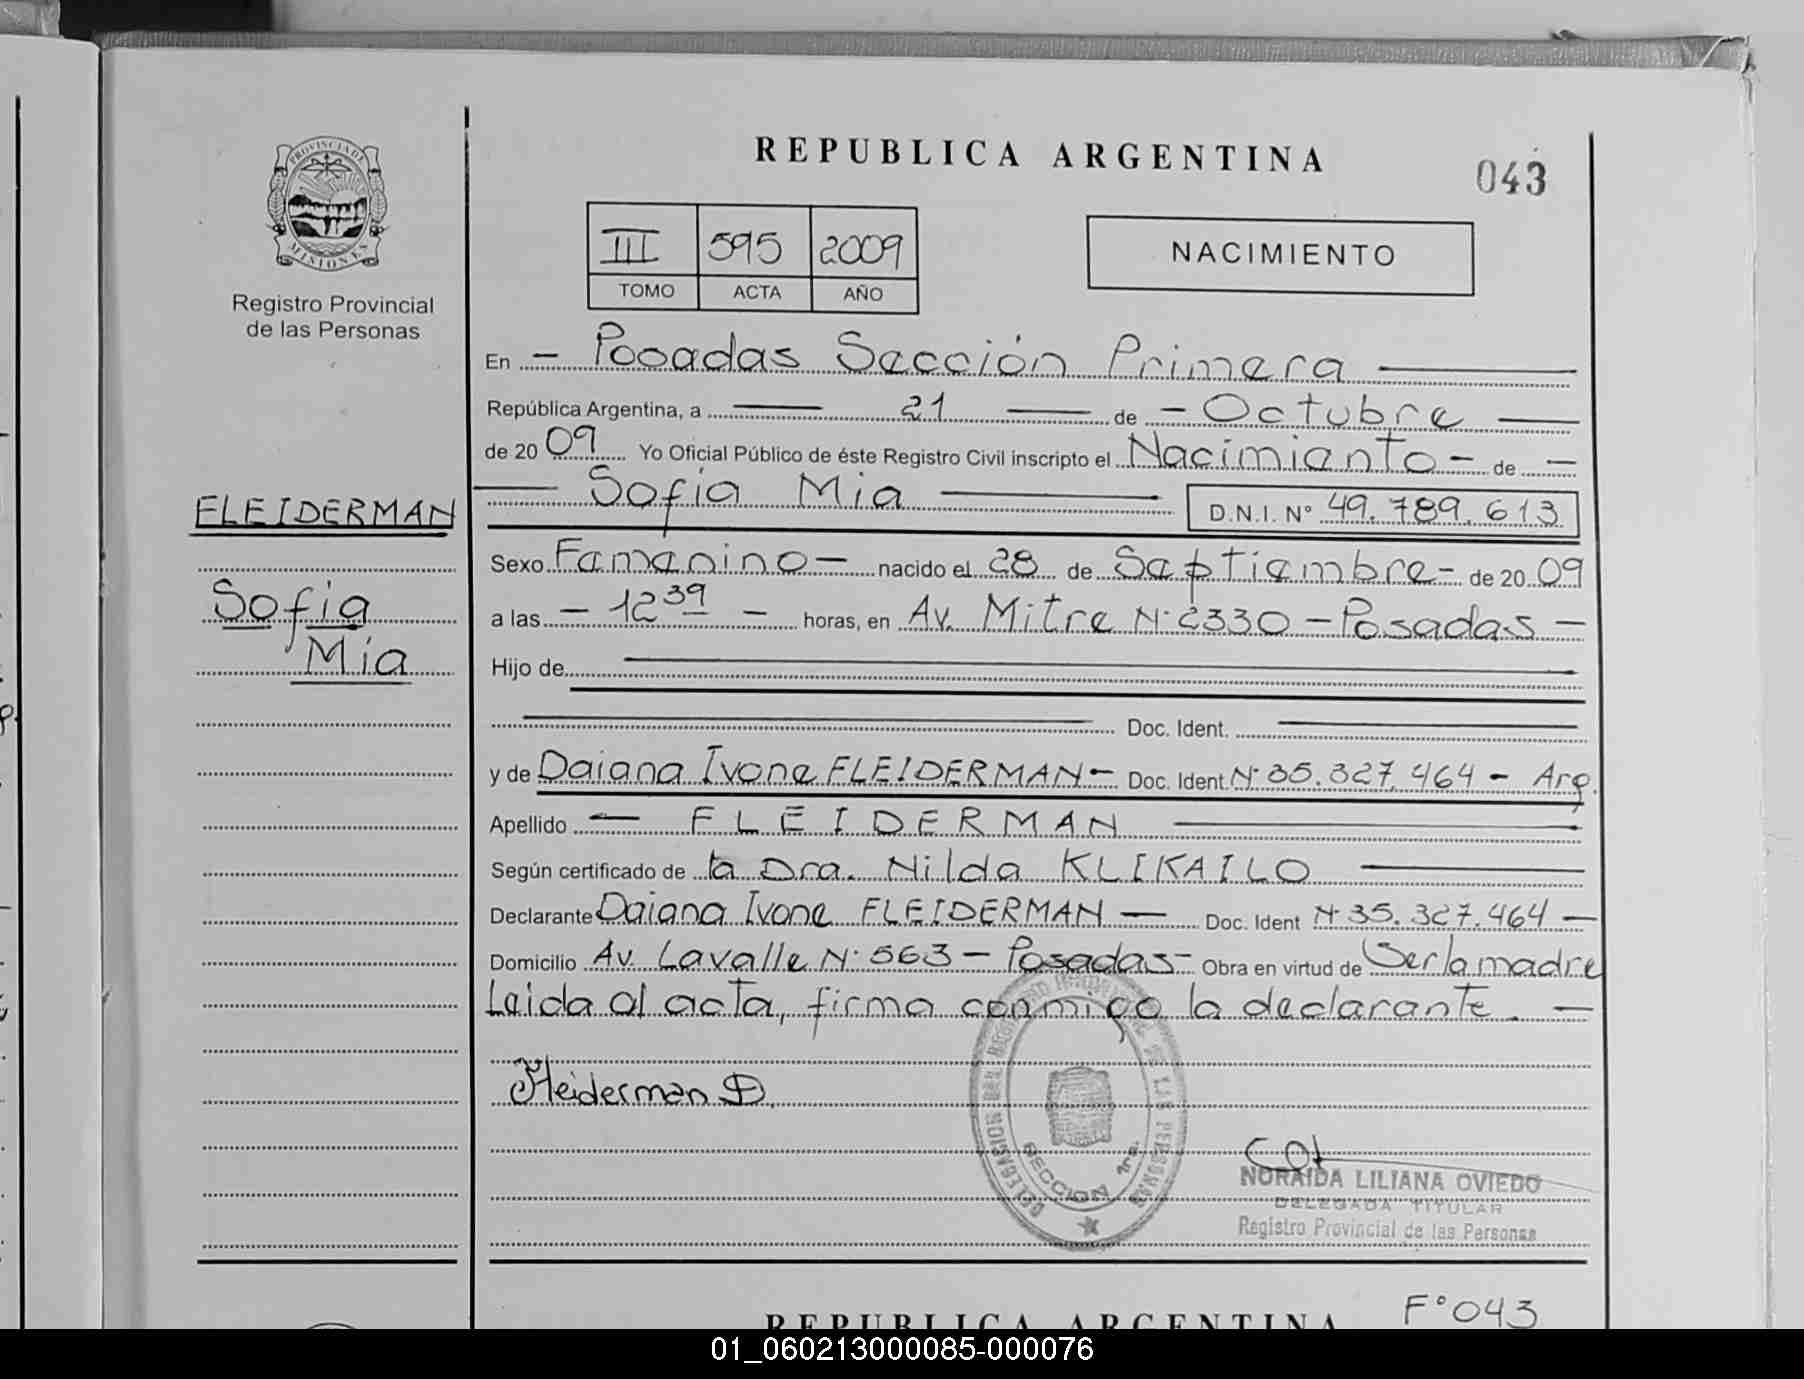 PROVINCIA DE
MISIONES
Registro Provincial
de las Personas
FLEIDERMAN
Sofía
Mía
REPUBLICA ARGENTINA
043
III 595 2009
TOMO ACTA AÑO
NACIMIENTO
En - Posadas Sección Primera
República Argentina, a 21 de - Octubre
de 20 09 Yo Oficial Público de éste Registro Civil inscripto el Nacimiento - de -
Sofía Mia D.N.I. N° 49.789.613
Sexo Femenino - nacido el 28 de Septiembre - de 20 09
a las - 12 39 - horas, en Av. Mitre N° 2330 - Posadas -
Hijo de
Doc. Ident.
y de Daiana Ivone FLEIDERMAN - Doc. Ident. N° 35.327.464 - Arg.
Apellido - FLEIDERMAN
Según certificado de la Dra. Nilda KLIKAILO
Declarante Daiana Ivone FLEIDERMAN - Doc. Ident N° 35.327.464 -
Domicilio Av. Lavalle N° 563 - Posadas - Obra en virtud de Ser la madre
Leida el acta, firma conmigo la declarante. -
Fleiderman D.
DELEGACION DEL REGISTRO PROVINCIAL DE LAS PERSONAS
SECCION 1ra.
NORAIDA LILIANA OVIEDO
DELEGADA TITULAR
Registro Provincial de las Personas
F° 043
REPUBLICA ARGENTINA
01_060213000085-000076